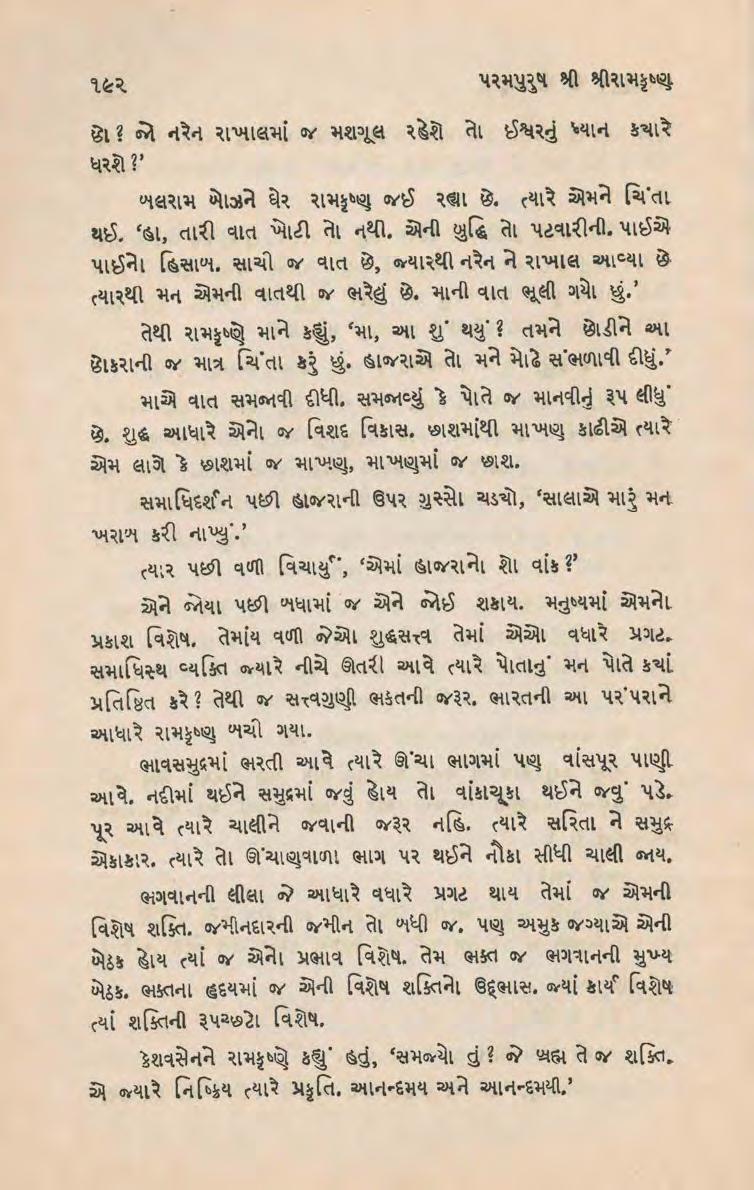 ૧૯૨ પરમપુરુષ શ્રી શ્રીરામકૃષ્ણ
છો? જો નરેન રાખાલમાં જ મશગૂલ રહેશે તો ઈશ્વરનું ધ્યાન કયારે
ધરશે?’
બલરામ બોઝને ઘેર રામકૃષ્ણ જઈ રહ્યા છે. ત્યારે એમને ચિંતા
થઈ. ‘હા, તારી વાત ખોટી તો નથી. એની બુદ્ધિ તો પટવારીની. પાઈએ
પાઈનો હિસાબ. સાચી જ વાત છે, જ્યારથી નરેન ને રાખાલ આવ્યા છે
ત્યારથી મન એમની વાતથી જ ભરેલું છે. માની વાત ભૂલી ગયો છું.’
તેથી રામકૃષ્ણે માને કહ્યું, ‘મા, આ શું થયું? તમને છોડીને આ
છોકરાની જ માત્ર ચિંતા કરું છું. હાજરાએ તો મને મોઢે સંભળાવી દીધું.’
માએ વાત સમજાવી દીધી. સમજાવ્યું કે પોતે જ માનવીનું રૂપ લીધું
છે. શુદ્ધ આધારે એનો જ વિશદ વિકાસ. છાશમાંથી માખણ કાઢીએ ત્યારે
એમ લાગે કે છાશમાં જ માખણ, માખણમાં જ છાશ.
સમાધિદર્શન પછી હાજરાની ઉપર ગુસ્સો ચડયો, ‘સાલાએ મારું મન
ખરાબ કરી નાખ્યું.’
ત્યાર પછી વળી વિચાર્યું, ‘એમાં હાજરાનો શો વાંક?’
એને જોયા પછી બધામાં જ એને જોઈ શકાય. મનુષ્યમાં એમનો
પ્રકાશ વિશેષ. તેમાંય વળી જેઓ શુદ્ધસત્ત્વ તેમાં એઓ વધારે પ્રગટ.
સમાધિસ્થ વ્યક્તિ જ્યારે નીચે ઊતરી આવે ત્યારે પોતાનું મન પોતે કયાં
પ્રતિષ્ઠિત કરે? તેથી જ સત્ત્વગુણી ભકતની જરૂર. ભારતની આ પરંપરાને
આધારે રામકૃષ્ણ બચી ગયા.
ભાવસમુદ્રમાં ભરતી આવે ત્યારે ઊંચા ભાગમાં પણ વાંસપૂર પાણી
આવે. નદીમાં થઈને સમુદ્રમાં જવું હોય તો વાંકાચૂકા થઈને જવું પડે.
પૂર આવે ત્યારે ચાલીને જવાની જરૂર નહિ. ત્યારે સરિતા ને સમુદ્ર
એકાકાર. ત્યારે તો ઊંચાણવાળા ભાગ પર થઈને નૌકા સીધી ચાલી જાય.
ભગવાનની લીલા જે આધારે વધારે પ્રગટ થાય તેમાં જ એમની
વિશેષ શક્તિ. જમીનદારની જમીન તો બધી જ. પણ અમુક જગ્યાએ એની
બેઠક હોય ત્યાં જ એનો પ્રભાવ વિશેષ. તેમ ભક્ત જ ભગવાનની મુખ્ય
બેઠક. ભક્તના હૃદયમાં જ એની વિશેષ શક્તિનો ઉદ્ભાસ. જ્યાં કાર્ય વિશેષ
ત્યાં શક્તિની રૂપચ્છટો વિશેષ.
કેશવસેનને રામકૃષ્ણે કહ્યું હતું, ‘સમજ્યો તું? જે બ્રહ્મ તે જ શક્તિ.
એ જ્યારે નિષ્ક્રિય ત્યારે પ્રકૃતિ. આનન્દમય અને આનન્દમયી.’